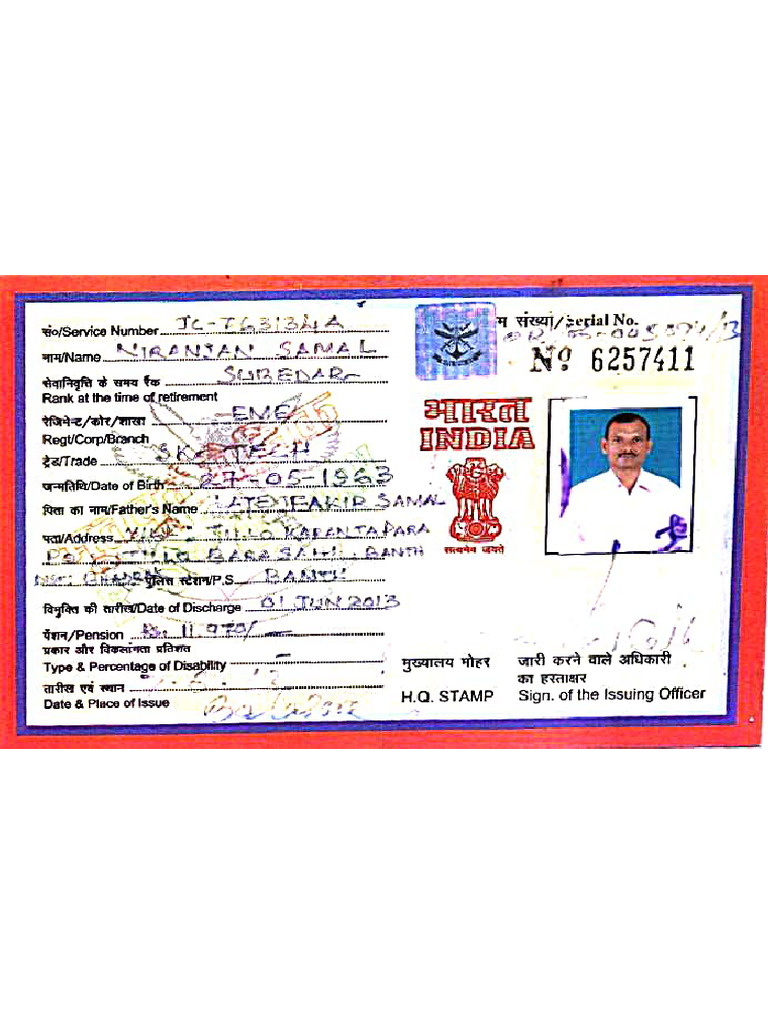 सं०/Service Number
नाम/Name NIRANJAN SAMAL
सेवानिवृत्ति के समय रैंक SUBEDAR
Rank at the time of retirement
रेजिमेन्ट/कोर/शाखा EME
Regt/Corp/Branch
ट्रेड/Trade TECH
जन्मतिथि/Date of Birth 27-05-1963
पिता का नाम/Father's Name LATE FAKIR SAMAL
पता/Address
BANTH
पुलिस स्टेशन/P.S.
विमुक्ति की तारीख/Date of Discharge 01 JUN 2013
पेंशन/Pension
प्रकार और विकलांगता प्रतिशत
Type & Percentage of Disability -
तारीख एवं स्थान
Date & Place of Issue
संख्या/Serial No.
Nº 6257411
भारत
INDIA
सत्यमेव जयते
मुख्यालय मोहर
H.Q. STAMP
जारी करने वाले अधिकारी
का हस्ताक्षर
Sign. of the Issuing Officer